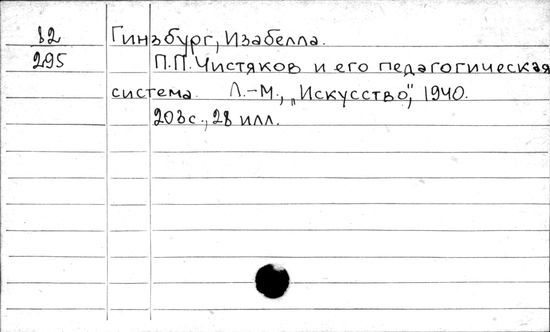 82
295
Гинзбург, Изабелла.
П.П. Чистяков и его педагогическая
система. Л.-М., „Искусство", 1940.
203с., 28 илл.